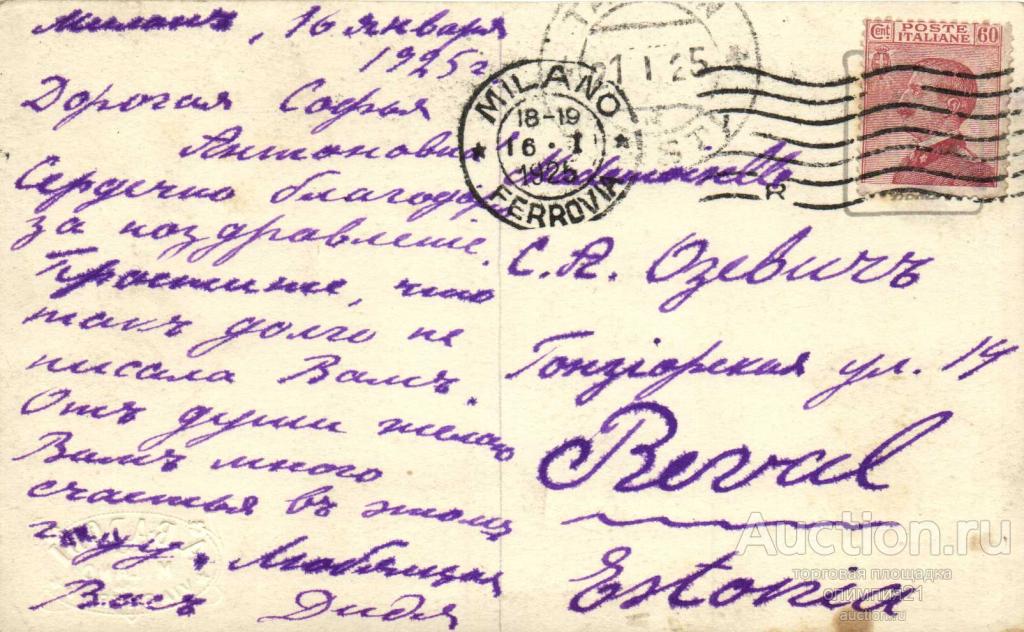 Миланъ, 16 января
1925 г
Дорогая Софья
Антоновна
Сердечно благодар
за поздравленіе.
Простите, что
такъ долго не
писала Вамъ.
Отъ души желаю
Вамъ много
счастья въ этомъ
году. Любящая
Васъ Дидя
MILANO
18-19
16 · I
1925
FERROVIA
21 I 25
POSTE
ITALIANE
Cent 60
R
С. А. Озевичъ
ул. 14
Reval
Estonia
Auction.ru
торговая площадка
олимпия21
auction.ru